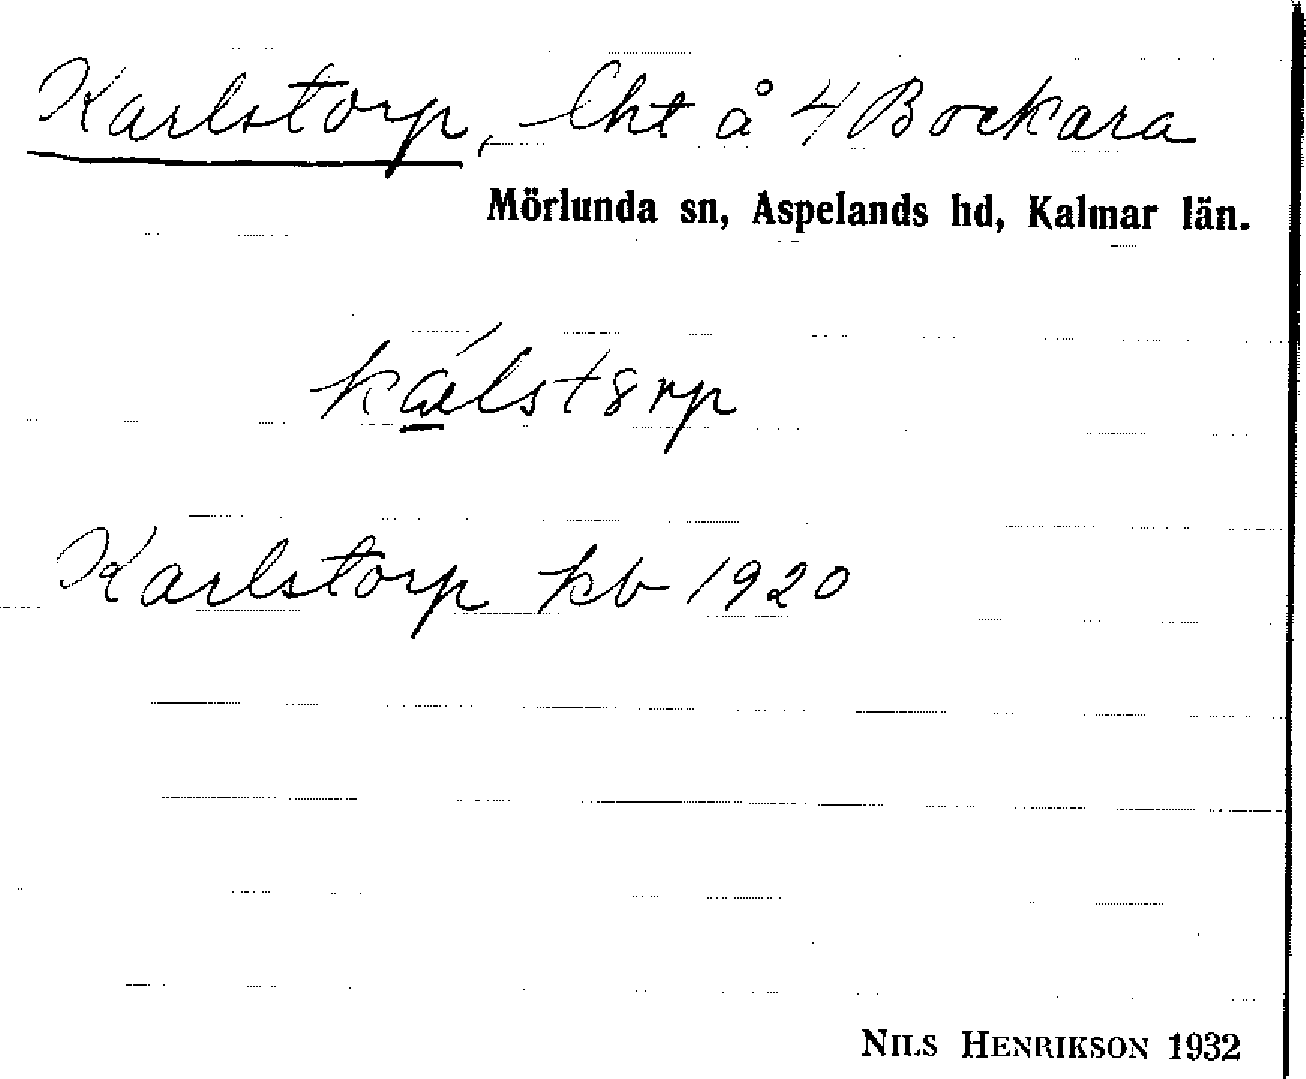 Karlstorp, lht å 4 Bockara
Mörlunda sn, Aspelands hd, Kalmar län.
kálst8rp
Karlstorp kb 1920
NILS HENRIKSON 1932